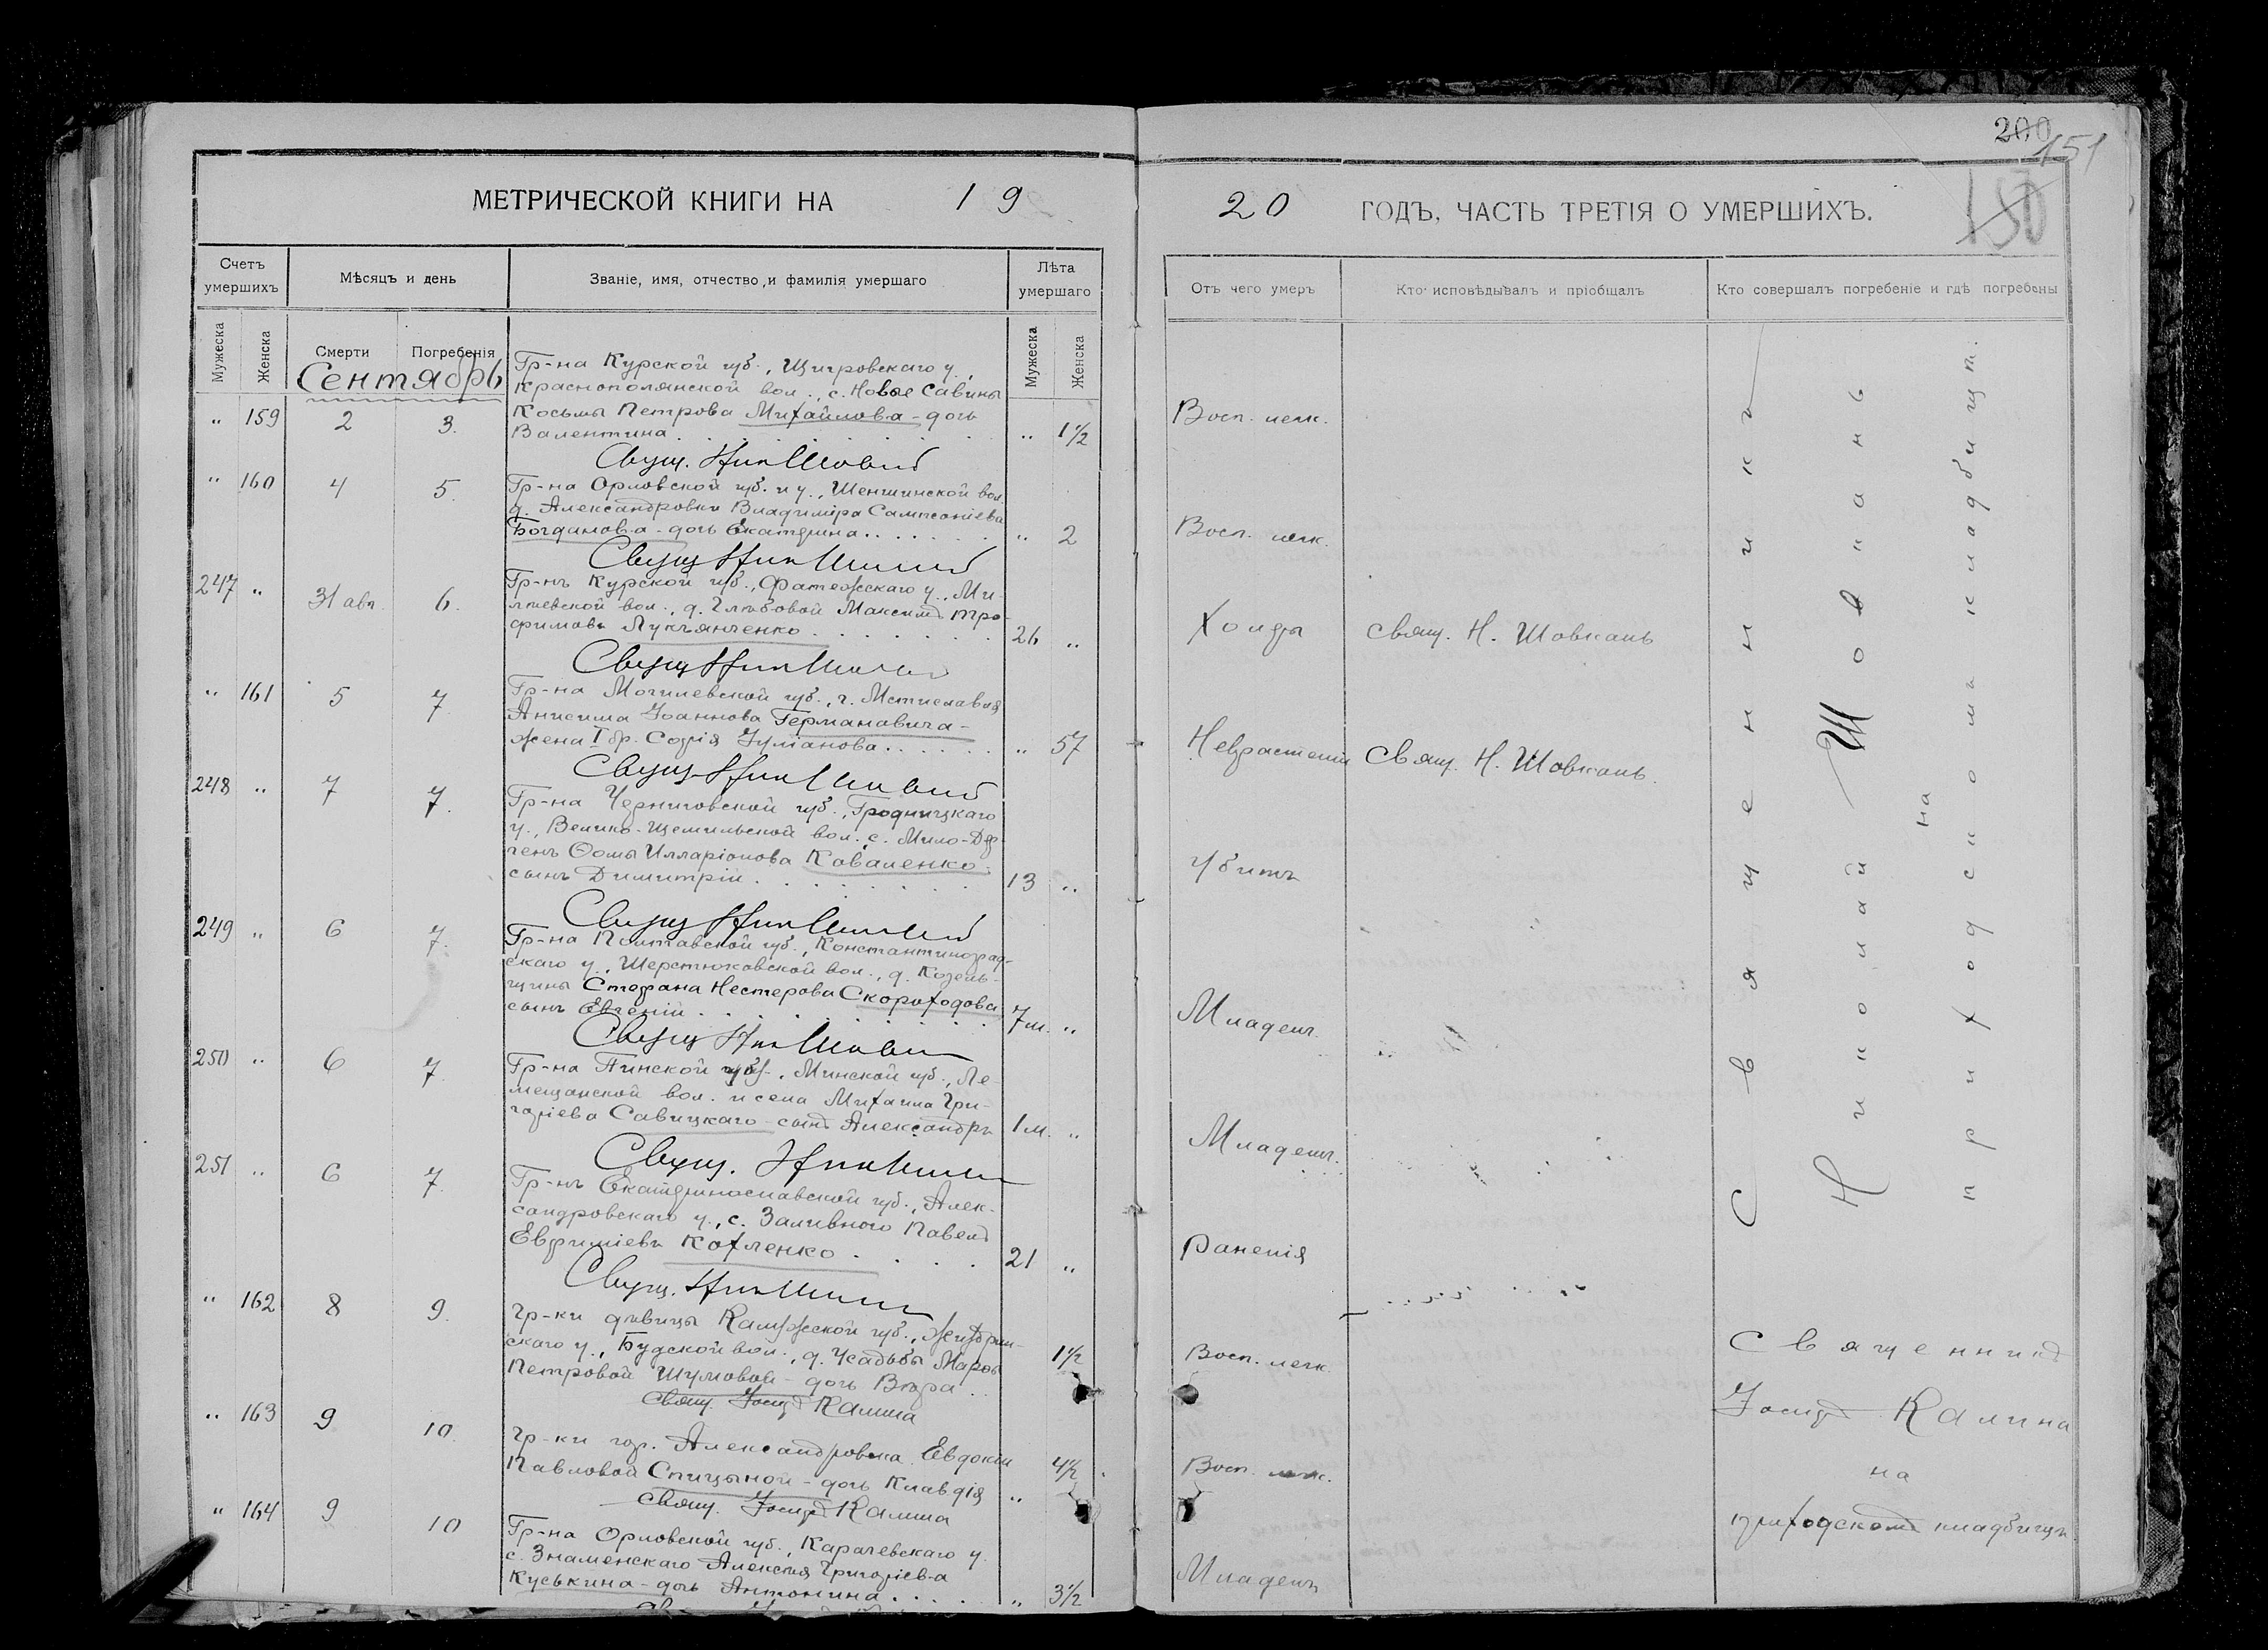 200
151
150
МЕТРИЧЕСКОЙ КНИГИ НА 19
20 ГОДЪ, ЧАСТЬ ТРЕТІЯ О УМЕРШИХЪ.
Счетъ умершихъ
Мѣсяцъ и день
Званіе, имя, отчество, и фамилія умершаго
Лѣта умершаго
Отъ чего умеръ
Кто исповѣдывалъ и пріобщалъ
Кто совершалъ погребеніе и гдѣ погребены
Мужеска
Женска
Смерти
Погребенія
Мужеска
Женска
Сентябрь
Гр-на Курской губ., Щигровскаго у.,
Краснополянской вол., с. Новые Савины
„ 159 2 3. Косьмы Петрова Михайлова - дочь
Валентина „ 1½ Восп. легк.
Свящ. Ник Шовкань
„ 160 4 5. Гр-на Орловской губ. и у., Шеншинской вол.
д. Александровки Владиміра Сампсоніева
Богданова - дочь Екатерина „ 2 Восп. легк.
Свящ Ник Шовкань
247 „ 31 авг. 6. Гр-нъ Курской губ., Фатежскаго у., Ми-
ліевской вол., д. Глѣбовой Максимъ Тро-
фимовъ Лукьянченко 26 „ Холеры Свящ. Н. Шовкань
Свящ Ник Шовкань
„ 161 5 7. Гр-на Могилевской губ., г. Мстиславля
Анисима Іоаннова Германовича -
жена I бр. Софія Іуліанова „ 57 Неврастеніи Свящ. Н. Шовкань.
Свящ Ник Шовкань
248 „ 7 7. Гр-на Черниговской губ., Гродницкаго
у., Велико-Щемильской вол. с.
Ѳомы Илларіонова Коваленко -
сынъ Димитрій 13 „ Убитъ
Свящ Ник Шовкань
249 „ 6 7. Гр-на Полтавской губ., Константиноград-
скаго у., Шерстюковской вол., д. Козель-
щины Стефана Нестерова Скороходова
сынъ Евгеній 7 м. „ Младенч.
Свящ Ник Шовкань
250 „ 6 7. Гр-на Пинской, Минской губ., Ле-
мещанской вол. и села Михаила Гри-
горіева Савицкаго - сынъ Александръ 1 м. „ Младенч.
Свящ. Ник Шовкань
251 „ 6 7. Гр-нъ Екатеринославской губ., Алек-
сандровскаго у., с. Заливного Павелъ
Евфиміевъ Кохленко 21 „ Раненія
Свящ. Ник Шовкань
Священникъ
Николай Шовкань
на
приходскомъ кладбищѣ.
„ 162 8 9. Гр-ки дѣвицы Калужской губ., Жиздрин-
скаго у., Будской вол., д. Усадьбы Марѳы
Петровой Шумовой - дочь Вѣра 1½ Восп. легк.
Свящ. Іосифъ Калина
„ 163 9 10. Гр-ки гор. Александровска Евдокіи
Павловой Спицыной - дочь Клавдія „ 4½ Восп. легк.
Свящ. Іосифъ Калина
„ 164 9 10 Гр-на Орловской губ., Карачевскаго у.
с. Знаменскаго Алексѣя Григоріева
Куськина - дочь Антонина „ 3½ Младенч.
Священникъ
Іосифъ Калина
на
приходскомъ кладбищѣ